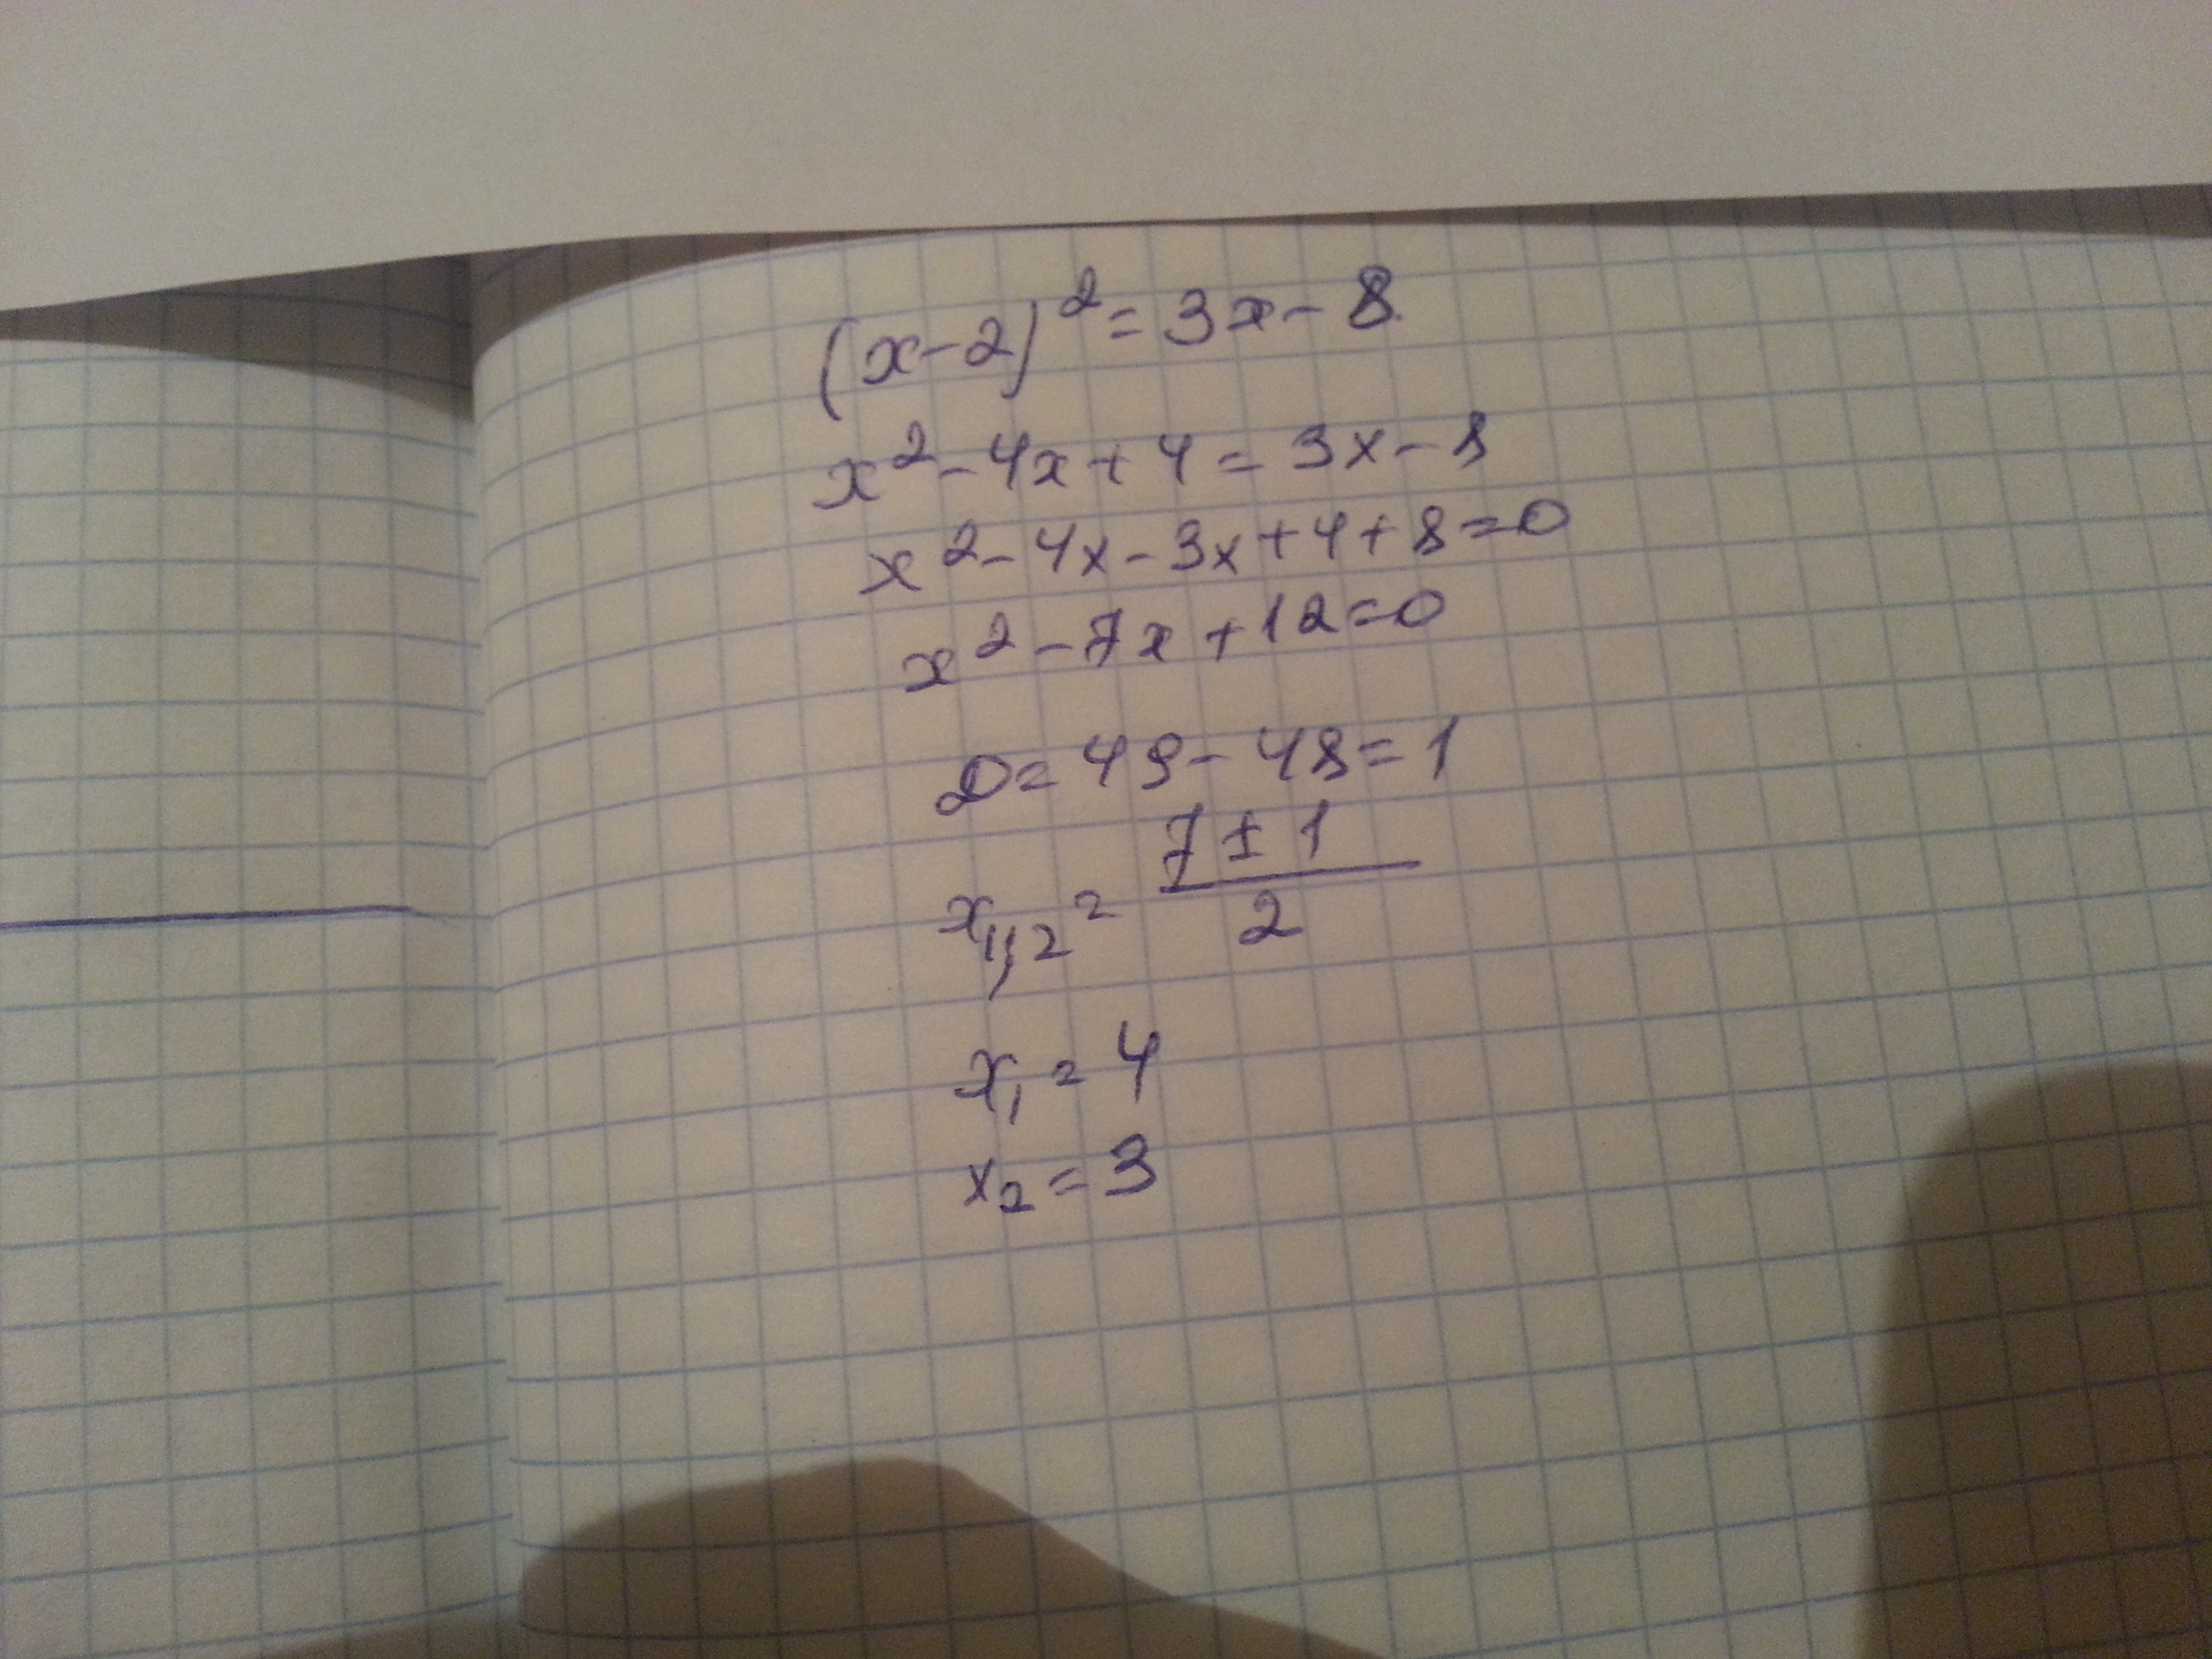 (x-2)² = 3x - 8
x² - 4x + 4 = 3x - 8
x² - 4x - 3x + 4 + 8 = 0
x² - 7x + 12 = 0
D = 49 - 48 = 1
x₁,₂ = (7 ± 1)/2
x₁ = 4
x₂ = 3